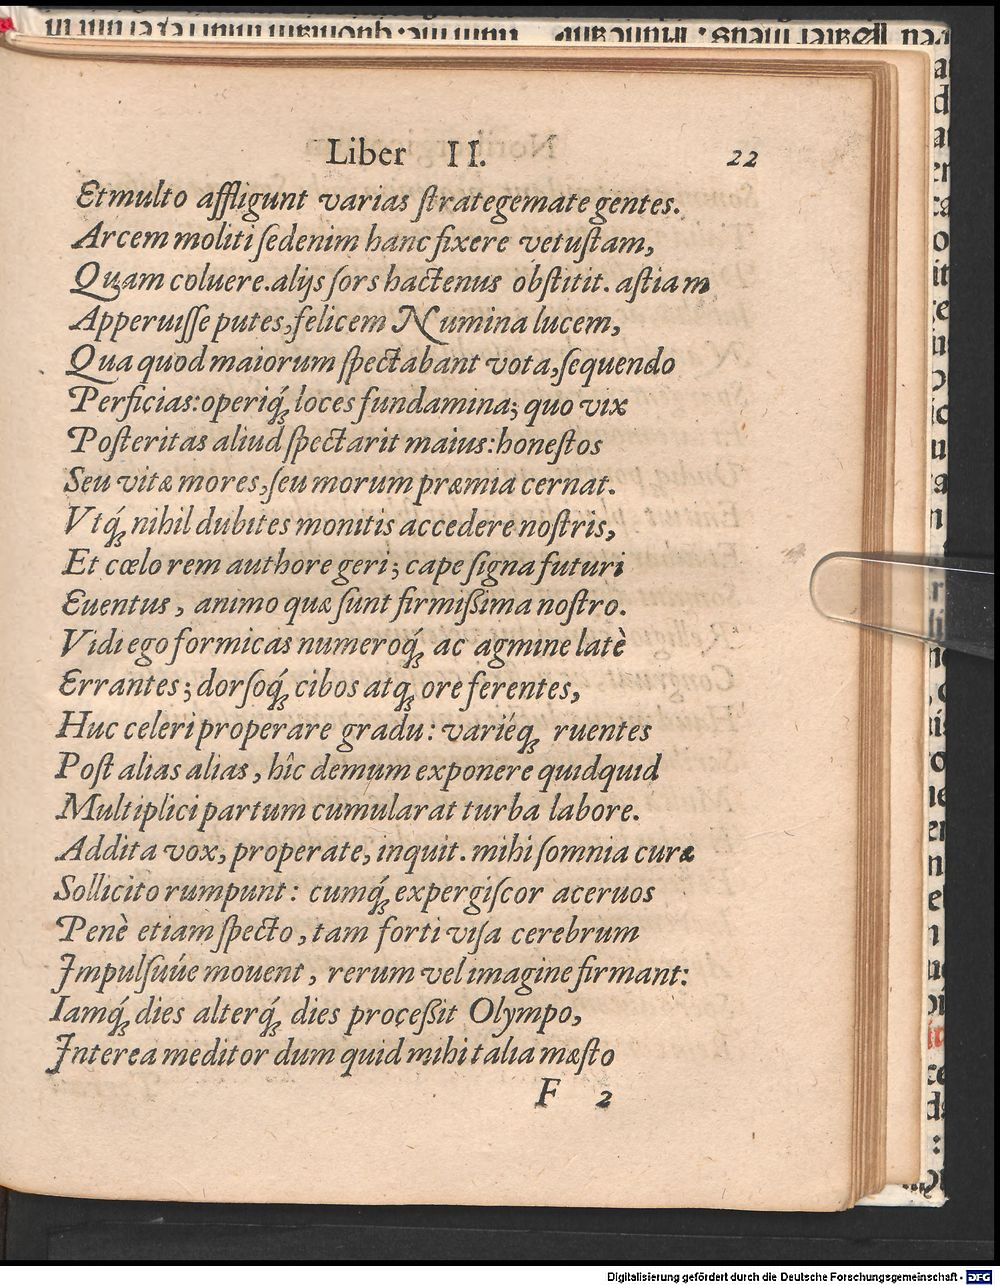 Liber II. 22
Et multo affligunt varias strategemate gentes.
Arcem moliti sed enim hanc fixere vetustam,
Quam coluere. alijs sors hactenus obstitit. astiam
Apperuisse putes, felicem Numina lucem,
Qua quod maiorum spectabant vota, sequendo
Perficias: operiq́; loces fundamina; quo vix
Posteritas aliud spectarit maius: honestos
Seu vitæ mores, seu morum præmia cernat.
Vtq́; nihil dubites monitis accedere nostris,
Et cœlo rem authore geri; cape signa futuri
Euentus, animo quæ sunt firmißima nostro.
Vidi ego formicas numeroq́; ac agmine latè
Errantes; dorsoq́; cibos atq; ore ferentes,
Huc celeri properare gradu: variéq; ruentes
Post alias alias, hîc demum exponere quidquid
Multiplici partum cumularat turba labore.
Addita vox, properate, inquit. mihi somnia curæ
Sollicito rumpunt: cumq́; expergiscor aceruos
Penè etiam specto, tam forti visa cerebrum
Impulsuúe mouent, rerum vel imagine firmant:
Iamq́; dies alterq́; dies proceßit Olympo,
Interea meditor dum quid mihi talia mæsto
F 2
Digitalisierung gefördert durch die Deutsche Forschungsgemeinschaft - DFG